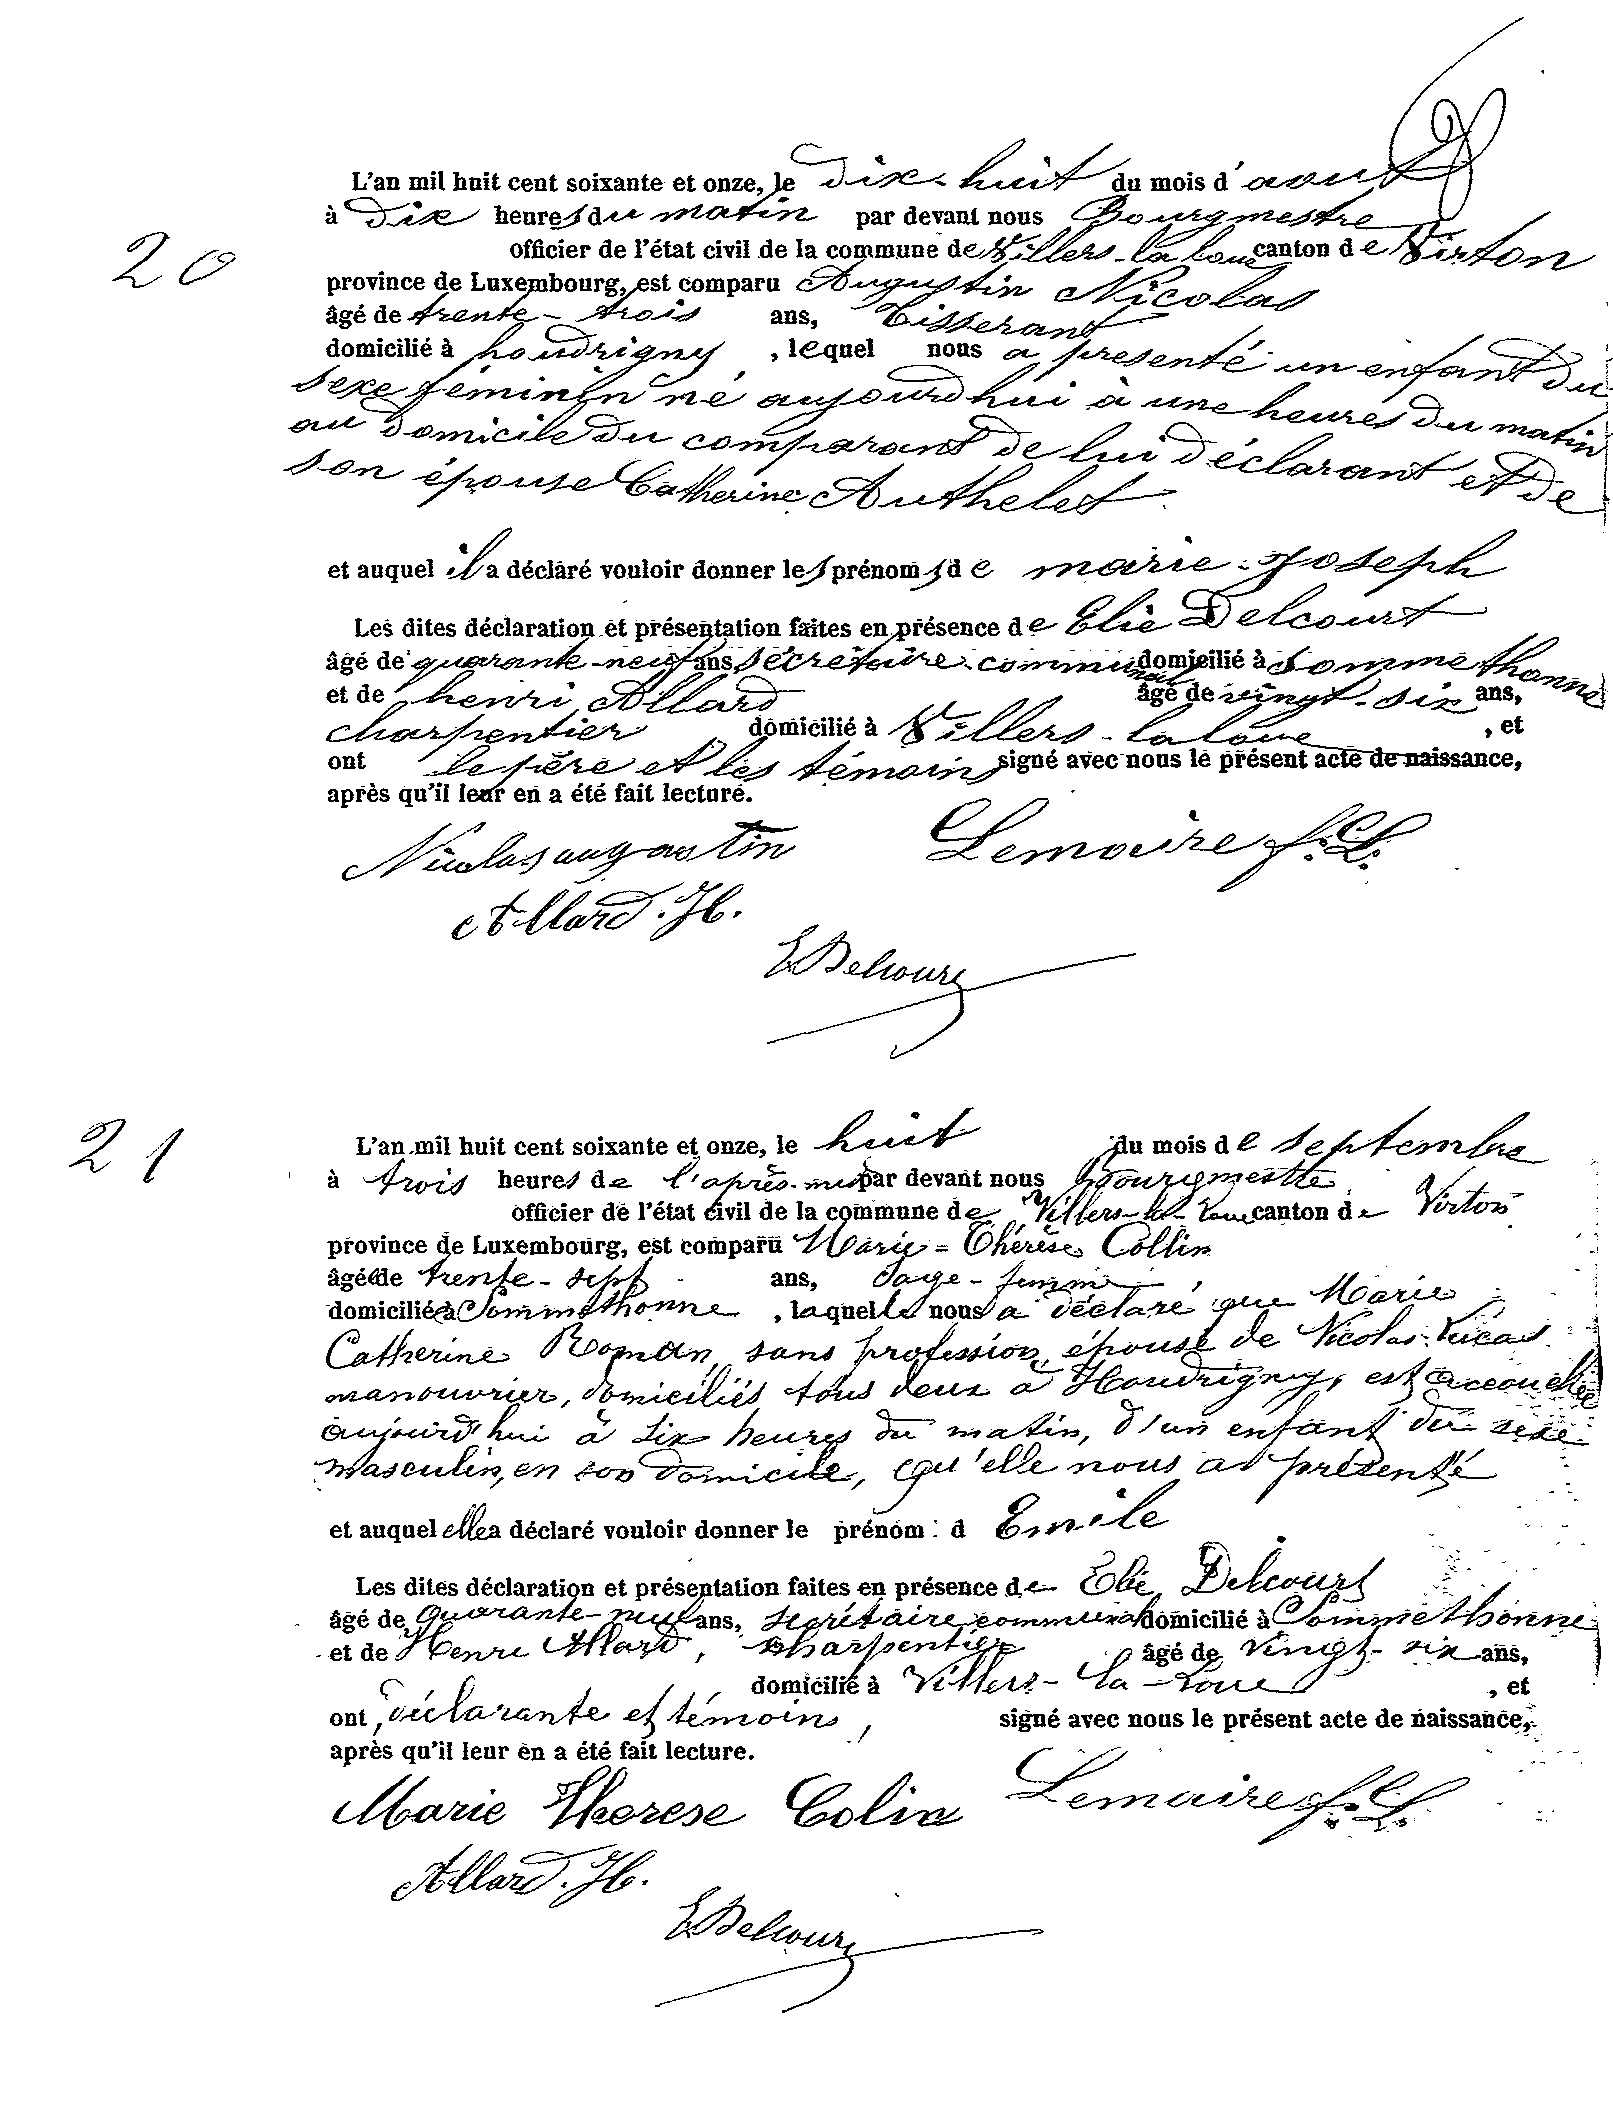 L'an mil huit cent soixante et onze, le dix-huit du mois d'aout
à dix heures du matin par devant nous Bourgmestre
20
officier de l'état civil de la commune de Villers-la loue canton de Virton
province de Luxembourg, est comparu Augustin Nicolas
âgé de trente-trois ans, Tisserant
domicilié à houdrigny, lequel nous a presenté un enfant du
sexe féminin né aujourdhui à une heures du matin
au domicile du comparant de lui déclarant et de
son épouse Catherine Authelet
et auquel il a déclaré vouloir donner les prénoms de marie-Joseph
Les dites déclaration et présentation faites en présence de Elie Delcourt
âgé de quarante-neuf ans, sécrétaire communal domicilié à Sommethonne
et de henri Allard âgé de vingt-six ans,
charpentier domicilié à Villers-la loue, et
ont le père et les témoins signé avec nous le présent acte de naissance,
après qu'il leur en a été fait lecture.
Nicolas augustin Lemaire f.L.
Allard.H.
E Delcourt
21
L'an mil huit cent soixante et onze, le huit du mois de septembre
à trois heures de l'après-midi par devant nous Bourgmestre
officier de l'état civil de la commune de Villers-la-Loue canton de Virton
province de Luxembourg, est comparu Marie-Thérèse Collin
âgée de trente-sept ans, Sage-femme,
domiciliée à Sommethonne, laquelle nous a déclaré que Marie
Catherine Roman, sans profession, épouse de Nicolas Lucas
manouvrier, domiciliés tous deux à Houdrigny, est accouchée
aujourd'hui à six heures du matin, d'un enfant du sexe
masculin, en son domicile, qu'elle nous a présenté
et auquel elle a déclaré vouloir donner le prénom d Emile
Les dites déclaration et présentation faites en présence de Elie Delcourt
âgé de quarante-neuf ans, secrétaire communal domicilié à Sommethonne
et de Henri Allard, charpentier âgé de vingt-six ans,
domicilié à Villers-la-Loue, et
ont, déclarante et témoins, signé avec nous le présent acte de naissance,
après qu'il leur en a été fait lecture.
Marie Therese Colin Lemaire f.L.
Allard.H.
E Delcourt